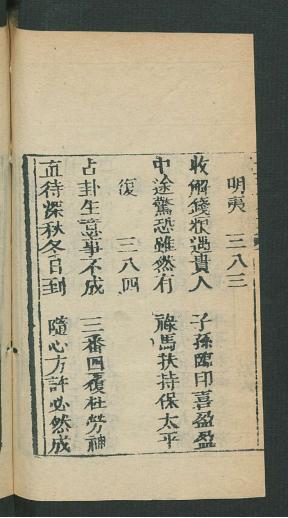 明夷 三八三
收解錢粮遇貴人 子孫臨印喜盈盈
中途驚恐雖然有 祿馬扶持保太平
復 三八四
占卦生意事不成 三番四覆枉勞神
直待深秋冬日到 隨心方許必然成